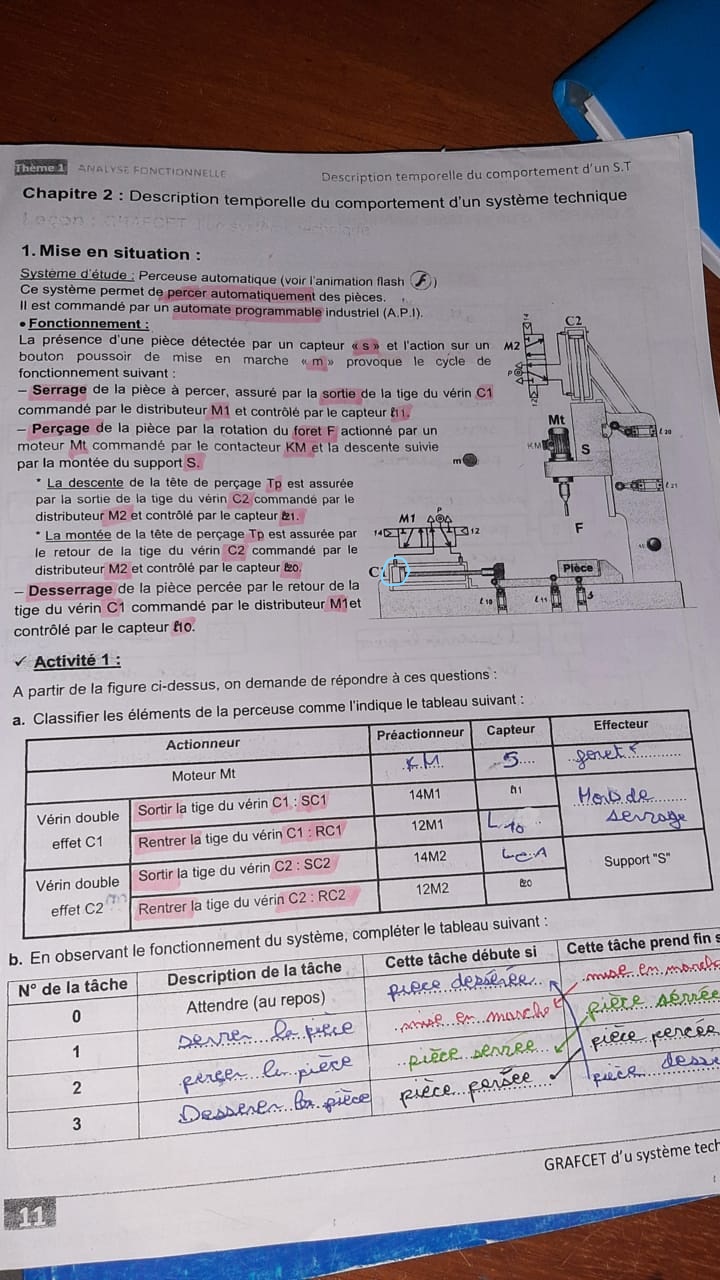 Thème 1 ANALYSE FONCTIONNELLE Description temporelle du comportement d'un S.T
Chapitre 2 : Description temporelle du comportement d'un système technique
1. Mise en situation :
Système d'étude : Perceuse automatique (voir l'animation flash )
Ce système permet de percer automatiquement des pièces.
Il est commandé par un automate programmable industriel (A.P.I).
• Fonctionnement :
La présence d'une pièce détectée par un capteur « s » et l'action sur un
bouton poussoir de mise en marche « m » provoque le cycle de
fonctionnement suivant :
– Serrage de la pièce à percer, assuré par la sortie de la tige du vérin C1
commandé par le distributeur M1 et contrôlé par le capteur ℓ11.
– Perçage de la pièce par la rotation du foret F actionné par un
moteur Mt commandé par le contacteur KM et la descente suivie
par la montée du support S.
* La descente de la tête de perçage Tp est assurée
par la sortie de la tige du vérin C2 commandé par le
distributeur M2 et contrôlé par le capteur ℓ21.
* La montée de la tête de perçage Tp est assurée par
le retour de la tige du vérin C2 commandé par le
distributeur M2 et contrôlé par le capteur ℓ20.
– Desserrage de la pièce percée par le retour de la
tige du vérin C1 commandé par le distributeur M1et
contrôlé par le capteur ℓ10.
C2
M2
P
Mt
KM
S
ℓ20
m
ℓ21
F
M1
P
14
12
C
Pièce
ℓ10
ℓ11
s
✓ Activité 1 :
A partir de la figure ci-dessus, on demande de répondre à ces questions :
a. Classifier les éléments de la perceuse comme l'indique le tableau suivant :
Actionneur Préactionneur Capteur Effecteur
Moteur Mt KM S foret
Vérin double effet C1 Sortir la tige du vérin C1 : SC1 14M1 ℓ11 Mors de serrage
Rentrer la tige du vérin C1 : RC1 12M1 L10
Vérin double effet C2 Sortir la tige du vérin C2 : SC2 14M2 Support "S"
Rentrer la tige du vérin C2 : RC2 12M2 ℓ20
b. En observant le fonctionnement du système, compléter le tableau suivant :
N° de la tâche Description de la tâche Cette tâche débute si Cette tâche prend fin s
0 Attendre (au repos) pièce desserée mise en marche
1 serrer la pièce mise en marche pièce sérrée
2 perçer la pièce pièce serrée pièce percée
3 Desserer la pièce pièce persée pièce desse
GRAFCET d'u système tech
11